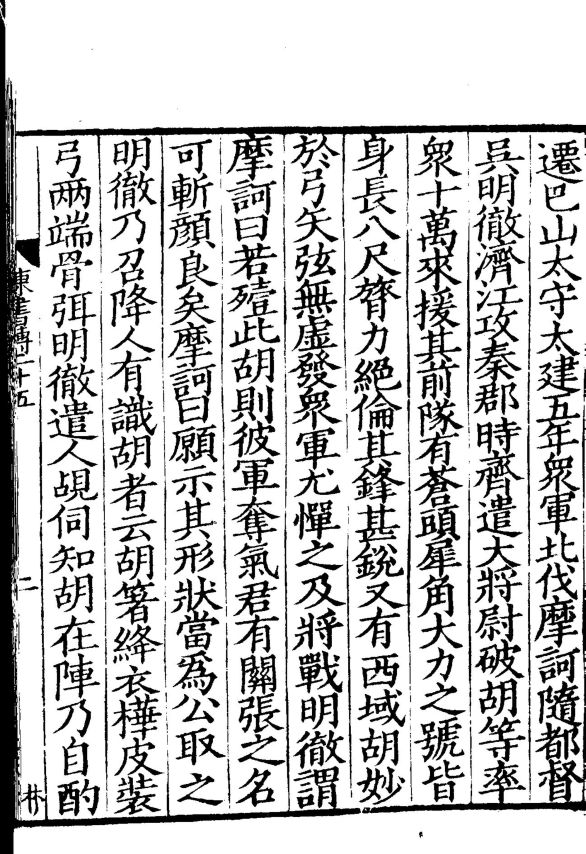 遷巴山太守太建五年衆軍北伐摩訶隨都督
吳明徹濟江攻秦郡時齊遣大將尉破胡等率
衆十萬來援其前隊有蒼頭犀角大力之號皆
身長八尺膂力絕倫其鋒甚銳又有西域胡妙
於弓矢弦無虛發衆軍尤憚之及將戰明徹謂
摩訶曰若殪此胡則彼軍奪氣君有關張之名
可斬顔良矣摩訶曰願示其形狀當爲公取之
明徹乃召降人有識胡者云胡箸絳衣樺皮裝
弓兩端骨弭明徹遣人覘伺知胡在陣乃自酌
陳書傳二十五
二
林